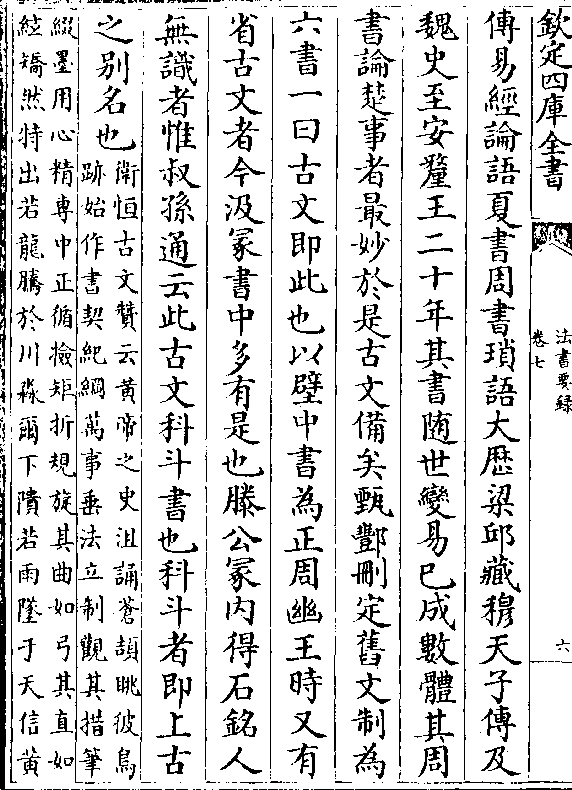 欽定四庫全書
法書要録
卷七
六
傳易經論語夏書周書瑣語大厯梁邱藏穆天子傳及
魏史至安釐王二十年其書随世變易已成數體其周
書論楚事者最妙於是古文備矣甄酆刪定舊文制為
六書一曰古文即此也以壁中書為正周幽王時又有
省古文者今汲冢書中多有是也滕公冢内得石銘人
無識者惟叔孫通云此古文科斗書也科斗者即上古
之别名也
衛恒古文贊云黄帝之史沮誦蒼頡眺彼鳥
跡始作書契紀綱萬事垂法立制觀其措筆
綴墨用心精專中正循撿矩折規旋其曲如弓其直如
絃矯然特出若龍騰於川淼爾下隤若雨墜于天信黄